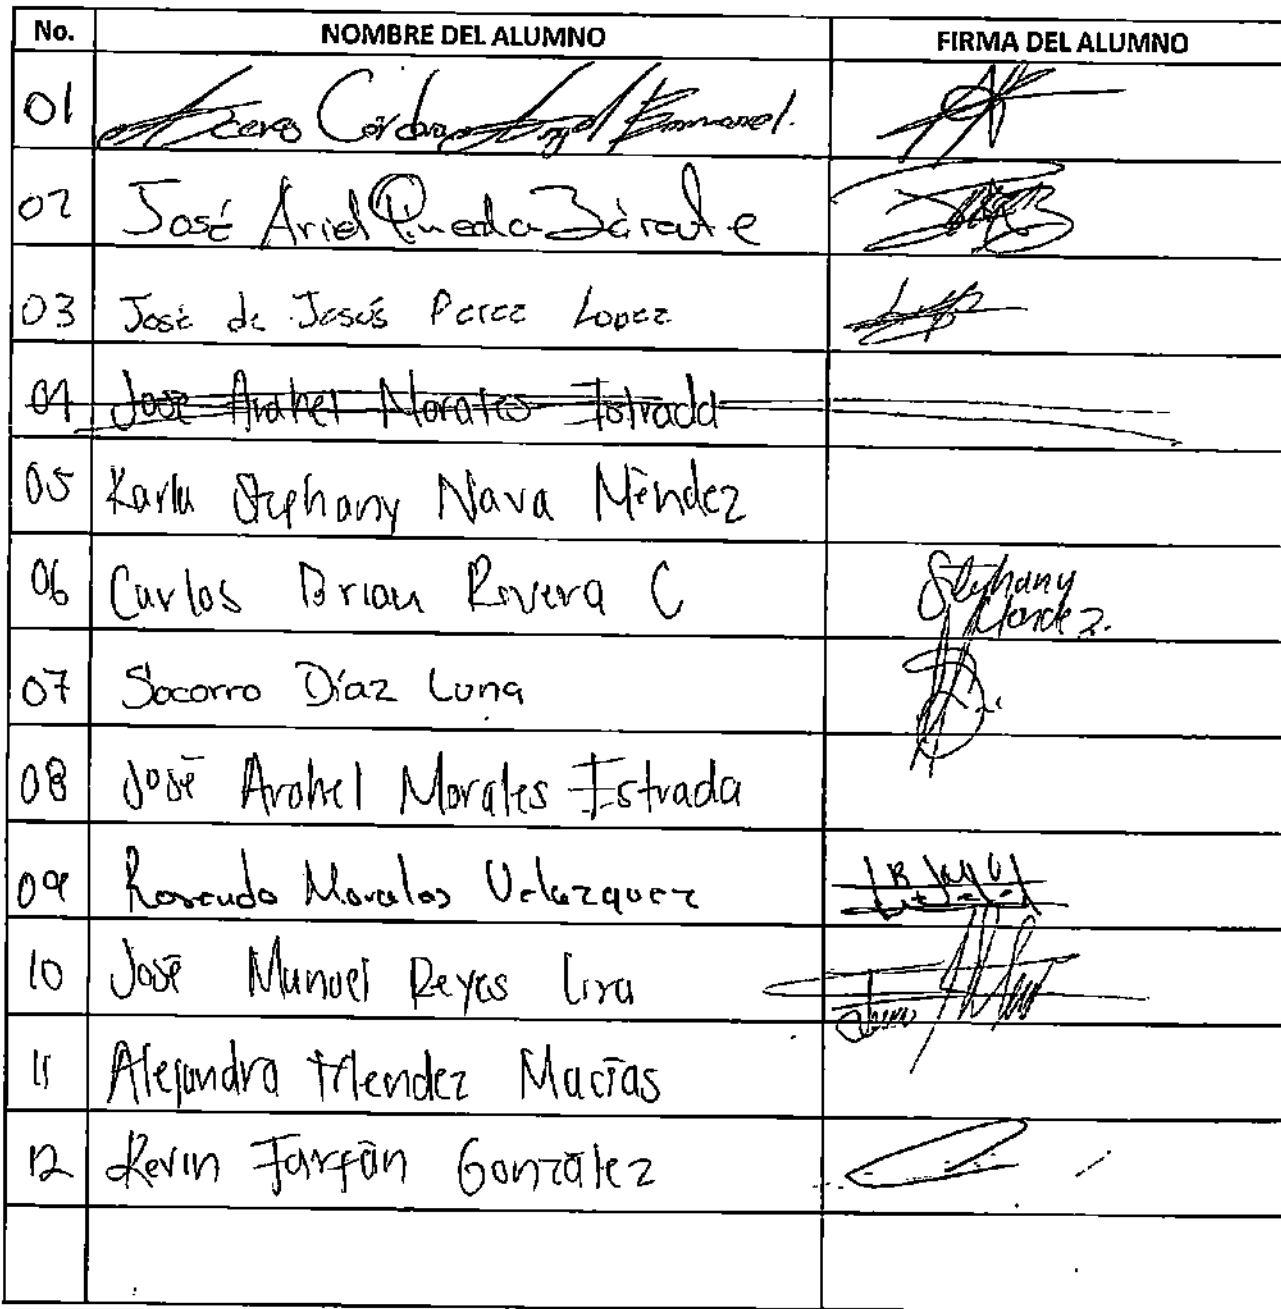 No. NOMBRE DEL ALUMNO FIRMA DEL ALUMNO
01 Acero Córdova Angel Emmanuel.
02 José Ariel Pineda Zárate
03 José de Jesús Perez Lopez
04 José Arahel Morales Estrada
05 Karla Stephany Nava Méndez
06 Carlos Brian Rivera C
Stephany
Mendez.
07 Socorro Díaz Luna
08 José Arahel Morales Estrada
09 Rosendo Morales Velazquez
10 José Manuel Reyes Lira
11 Alejandra Mendez Macías
12 Kevin Farfán González